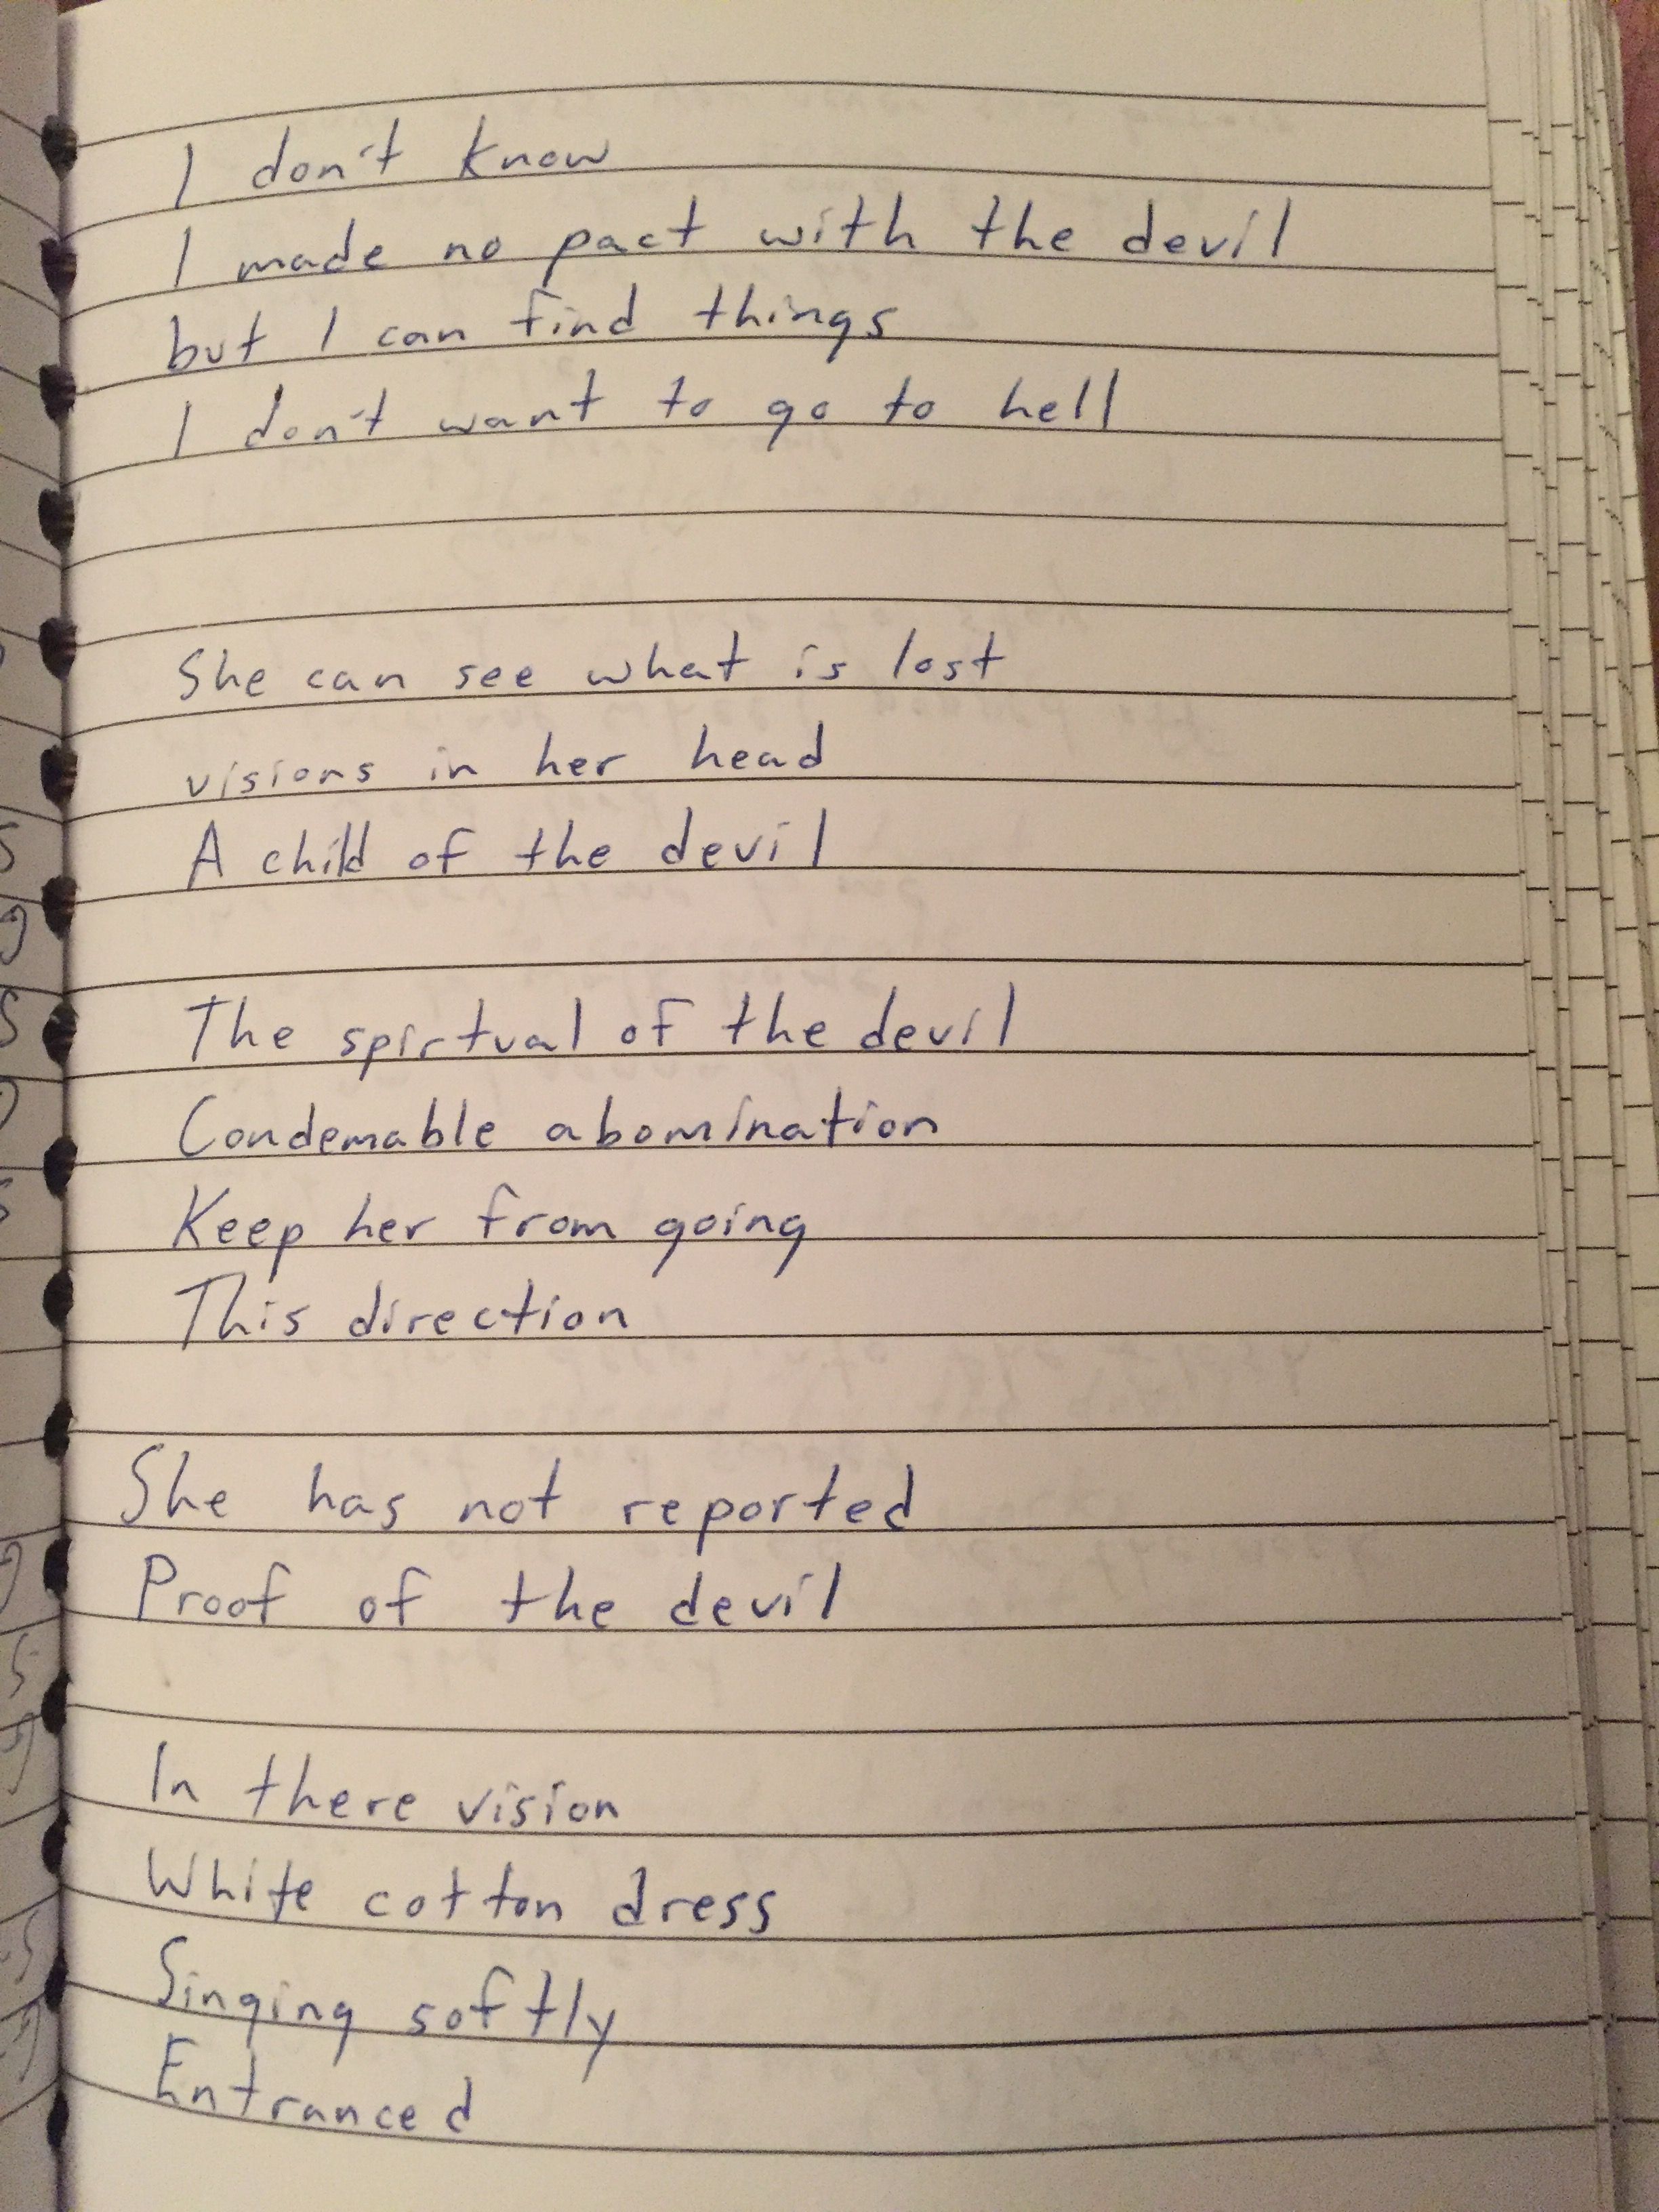 I don't know
I made no pact with the devil
but I can find things
I don't want to go to hell
She can see what is lost
visions in her head
A child of the devil
The spirtual of the devil
Condemable abomination
Keep her from going
This direction
She has not reported
Proof of the devil
In there vision
White cotton dress
Singing softly
Entranced